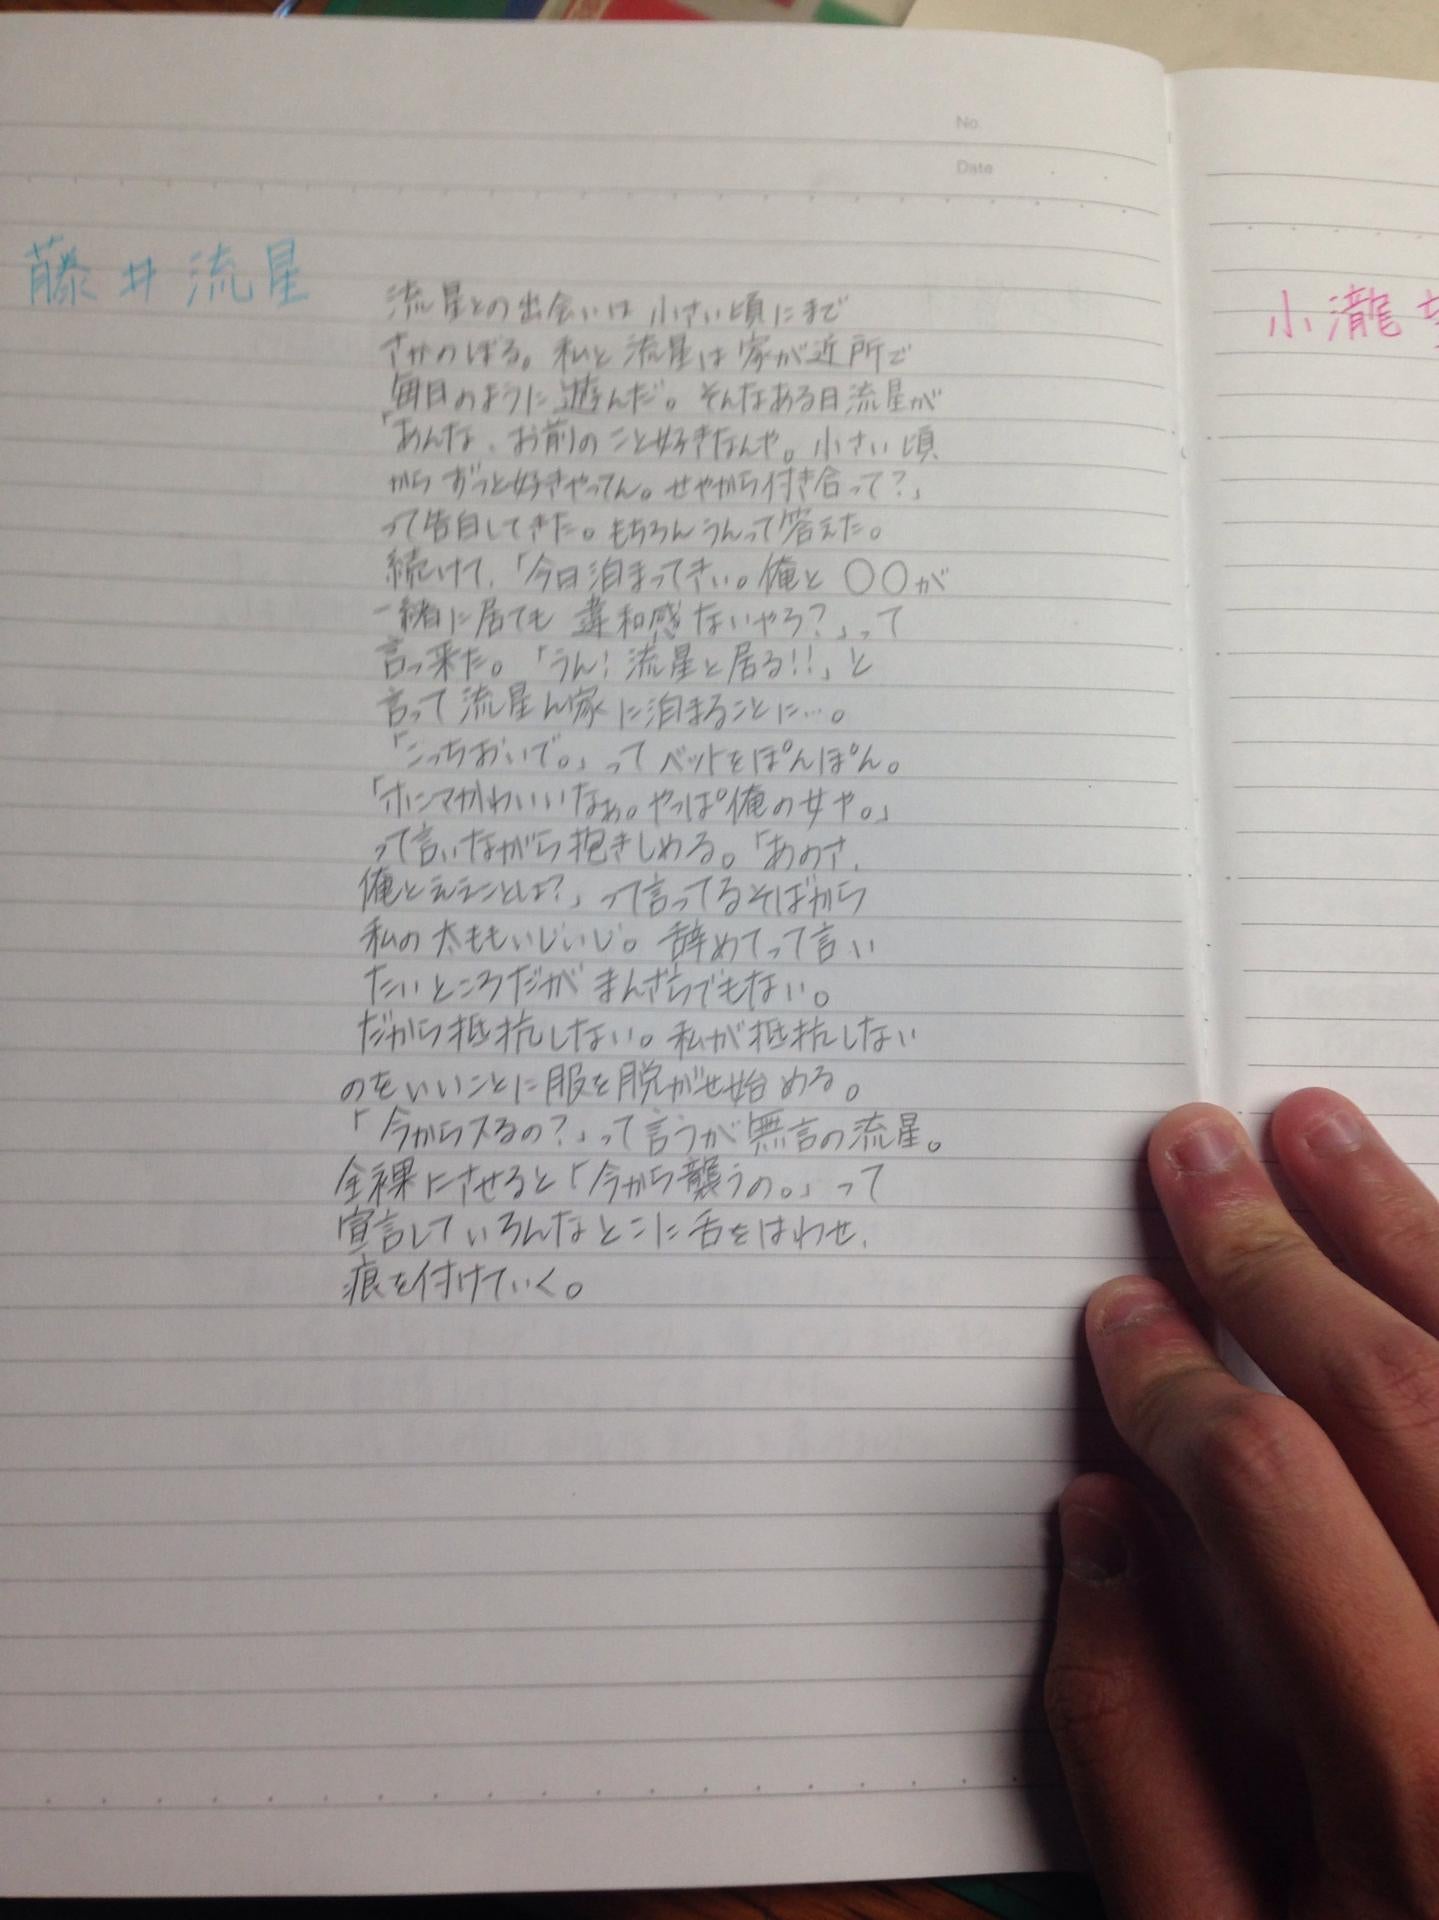 No.
Date
藤井流星
流星との出会いは小さい頃にまで
さかのぼる。私と流星は家が近所で
毎日のように遊んだ。そんなある日流星が
「あんな、お前のこと好きなんや。小さい頃
からずっと好きやってん。せやから付き合って?」
って告白してきた。もちろんうんって答えた。
続けて、「今日泊まってきぃ。俺と〇〇が
一緒に居ても違和感ないやろ?」って
言っ来た。「うん!流星と居る!!」と
言って流星ん家に泊まることに…。
「こっちおいで。」ってベットをぽんぽん。
「ホンマかわいいなぁ。やっぱ俺の女や。」
って言いながら抱きしめる。「あのさ、
俺とええことしよ?」って言ってるそばから
私の太ももいじいじ。辞めてって言い
たいところだがまんざらでもない。
だから抵抗しない。私が抵抗しない
のをいいことに服を脱がせ始める。
「今からスるの?」って言うが無言の流星。
全裸にさせると「今から襲うの。」って
宣言していろんなとこに舌をはわせ、
痕を付けていく。
小瀧